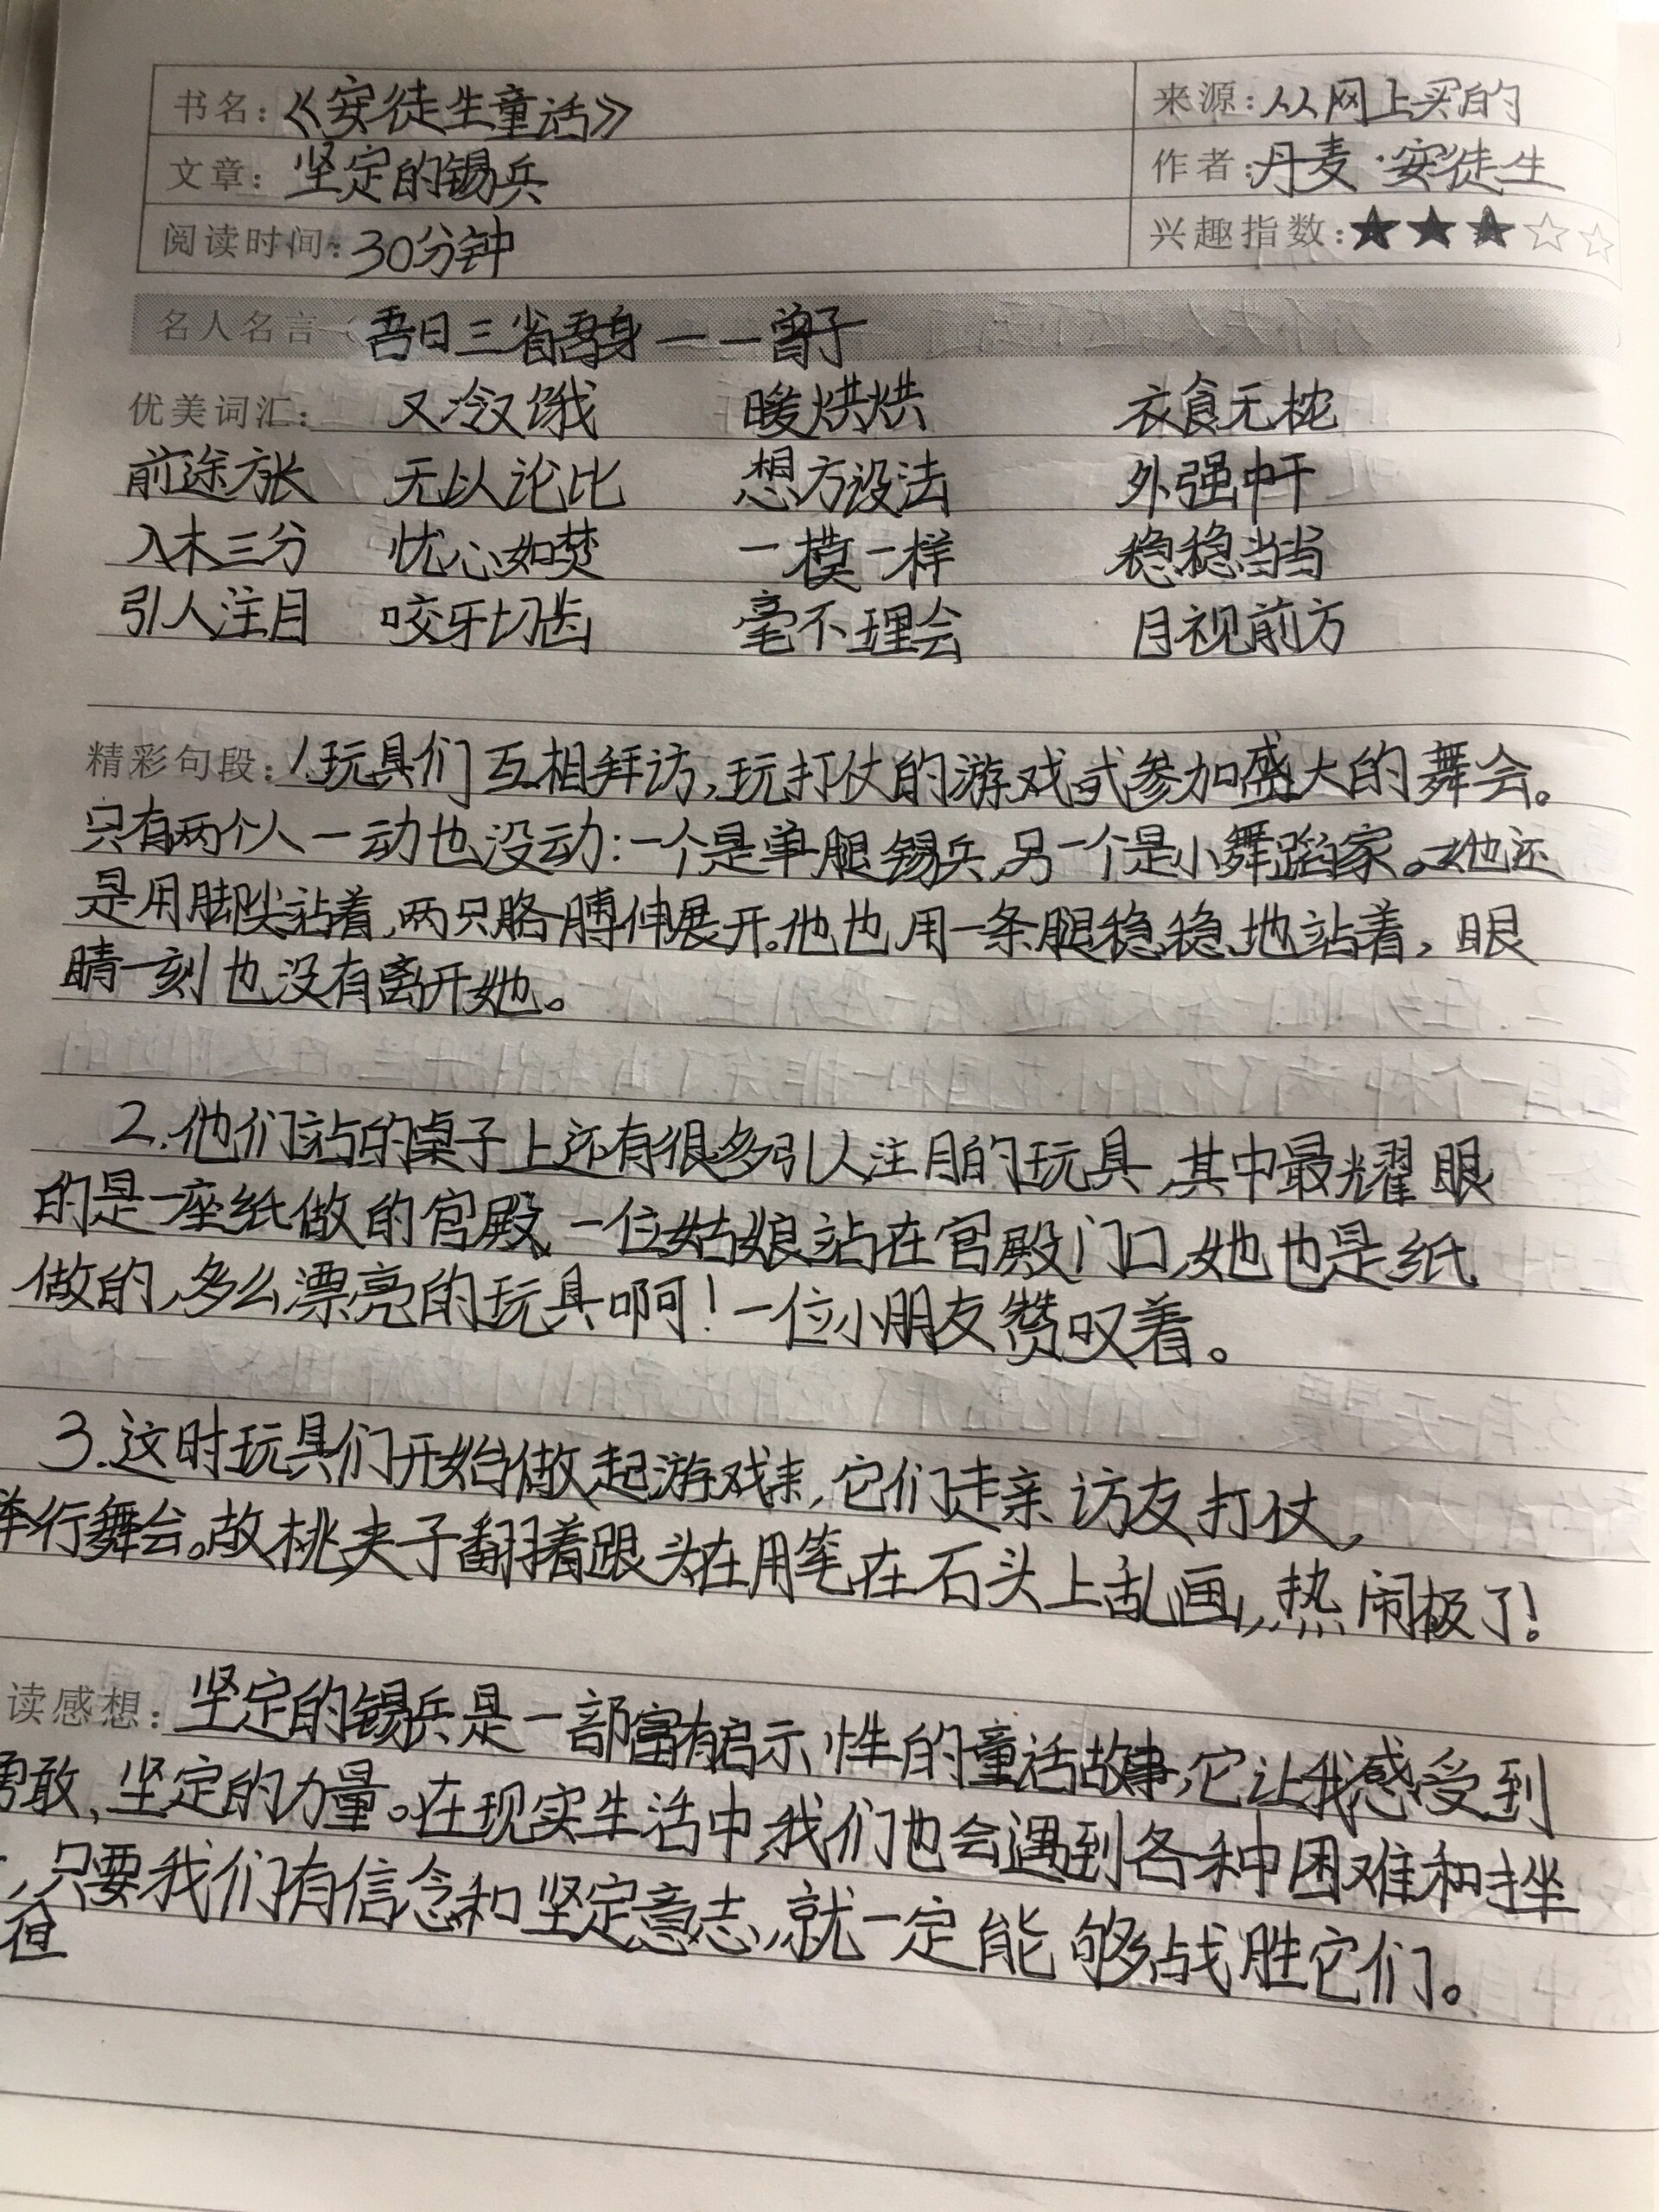 书名：《安徒生童话》 来源：从网上买的
文章：坚定的锡兵 作者：丹麦·安徒生
阅读时间：30分钟 兴趣指数：★★★☆☆
名人名言 吾日三省吾身——曾子
优美词汇： 又冷又饿 暖烘烘 衣食无忧
前途方长 无以论比 想方设法 外强中干
入木三分 忧心如焚 一模一样 稳稳当当
引人注目 咬牙切齿 毫不理会 目视前方
精彩句段：1.玩具们互相拜访，玩打仗的游戏或参加盛大的舞会。
只有两个人一动也没动：一个是单腿锡兵，另一个是小舞蹈家。她还
是用脚尖站着，两只胳膊伸展开。他也用一条腿稳稳地站着，眼
睛一刻也没有离开她。
2.他们站的桌子上还有很多引人注目的玩具，其中最耀眼
的是一座纸做的宫殿，一位姑娘站在宫殿门口，她也是纸
做的，多么漂亮的玩具啊！一位小朋友赞叹着。
3.这时玩具们开始做起游戏来，它们走亲访友打仗，
举行舞会。故桃夹子翻着跟头在用笔在石头上乱画，热闹极了！
读感想：坚定的锡兵是一部富有启示性的童话故事，它让我感受到
勇敢、坚定的力量。在现实生活中，我们也会遇到各种困难和挫
，只要我们有信念和坚定意志，就一定能够战胜它们。
但